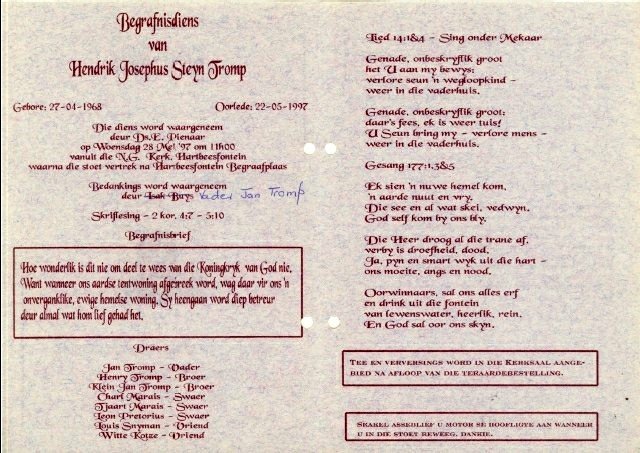 Begrafnisdiens
van
Hendrik Josephus Steyn Tromp
Gebore: 27-04-1968 Oorlede: 22-05-1997
Die diens word waargeneem
deur Ds.E. Pienaar
op Woensdag 28 Mei '97 om 11h00
vanuit die N.G. Kerk, Hartbeesfontein
waarna die stoet vertrek na Hartbeesfontein Begraafplaas
Bedankings word waargeneem
deur Isak Buys Vader Jan Tromp
Skriflesing - 2 kor. 4:7 - 5:10
Begrafnisbrief
Hoe wonderlik is dit nie om deel te wees van die Koningkryk van God nie.
Want wanneer ons aardse tentwoning afgebreek word, wag daar vir ons 'n
onverganklike, ewige hemelse woning. Sy heengaan word diep betreur
deur almal wat hom lief gehad het.
Draers
Jan Tromp - Vader
Henry Tromp - Broer
Klein Jan Tromp - Broer
Charl Marais - Swaer
Tjaart Marais - Swaer
Leon Pretorius - Swaer
Louis Snyman - Vriend
Witte Kotze - Vriend
Lied 14:1&4 - Sing onder Mekaar
Genade, onbeskryflik groot
het U aan my bewys;
verlore seun 'n wegloopkind -
weer in die vaderhuis.
Genade, onbeskryflik groot:
daar's fees, ek is weer tuis!
U Seun bring my - verlore mens -
weer in die vaderhuis.
Gesang 177:1,3&5
Ek sien 'n nuwe hemel kom,
'n aarde nuut en vry.
Die see en al wat skei, verdwyn.
God self kom by ons bly.
Die Heer droog al die trane af,
verby is droefheid, dood.
Ja, pyn en smart wyk uit die hart -
ons moeite, angs en nood.
Oorwinnaars, sal ons alles erf
en drink uit die fontein
van lewenswater, heerlik, rein.
En God sal oor ons skyn.
TEE EN VERVERSINGS WORD IN DIE KERKSAAL AANGE-
BIED NA AFLOOP VAN DIE TERAARDEBESTELLING.
SKAKEL ASSEBLIEF U MOTOR SE HOOFLIGTE AAN WANNEER
U IN DIE STOET BEWEEG. DANKIE.